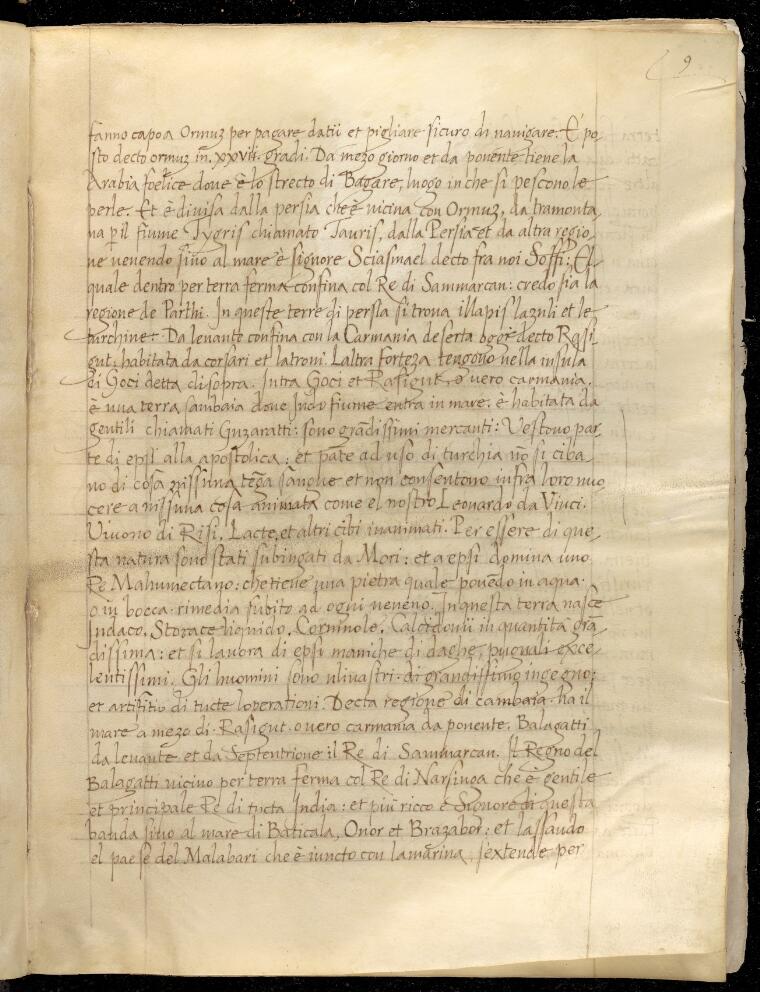 9
fanno capo a Ormuz per pagare datii et pigliare sicuro di navigare. E' po,
sto decto ormuz in. xxvii. gradi. Da mezo giorno et da ponente tiene la
Arabia foelice dove è lo strecto di Bagare, luogo in che si pescono le
perle. Et è divisa dalla persia che è vicina con Ormuz, da tramonta,
na p il fiume Tygris chiamato Tauris, dalla Persia et da altra regio,
ne venendo sino al mare è signore Sciasmael decto fra noi Soffi: El,
quale dentro per terra ferma confina col Re di Sammarcan: credo sia la
regione de Parthi. In queste terre di persia si trova illapis lazuli et le
turchine: Da levante confina con la Carmania deserta oggi decto Rasi,
gut, habitata da corsari et latroni. Laltra forteza tengono nella insula
di Goci detta di sopra. Intra Goci et Rasigut, o vero carmania.
è una terra Cambaia dove Indo fiume entra in mare. è habitata da
gentili chiamati Guzaratti: sono grādissimi mercanti: Vestono par,
te di epsi alla apostolica: et parte ad uso di turchia nō si ciba,
no di cosa nissuna tēga sangue et non consentono infra loro nuo
cere a nissuna cosa animata come el nostro Leonardo da Vinci.
Vivono di Risi, Lacte, et altri cibi inanimati. Per essere di que,
sta natura sono stati subiugati da Mori: et a epsi domina uno
Re Mahumectano: che tiene una pietra quale ponēdo in aqua.
o in bocca. rimedia subito ad ogni veneno. In questa terra nasce
Indaco. Storace liquido. Corniuole, Calcidonii in quantità grā,
dissima: et si lavora di epsi maniche di daghe, pugnali exce
lentissimi. Gli huomini sono ulivastri. di grandissimo ingegno:
et artifitio di tucte loperationi. Decta regione di cambaia. ha il
mare a mezo di. Rasigut. o vero carmania da ponente. Balagatti
da levante et da Septentrione il Re di Sammarcan. Il Regno del
Balagatti vicino per terra ferma col Re di Narsinga che è gentile
et principale Re di tucta India: et piu ricco è Signore di questa
banda sino al mare di Baticala, Onor et Brazabor: et lassando
el paese del Malabari che è iuncto con la marina, sextende per